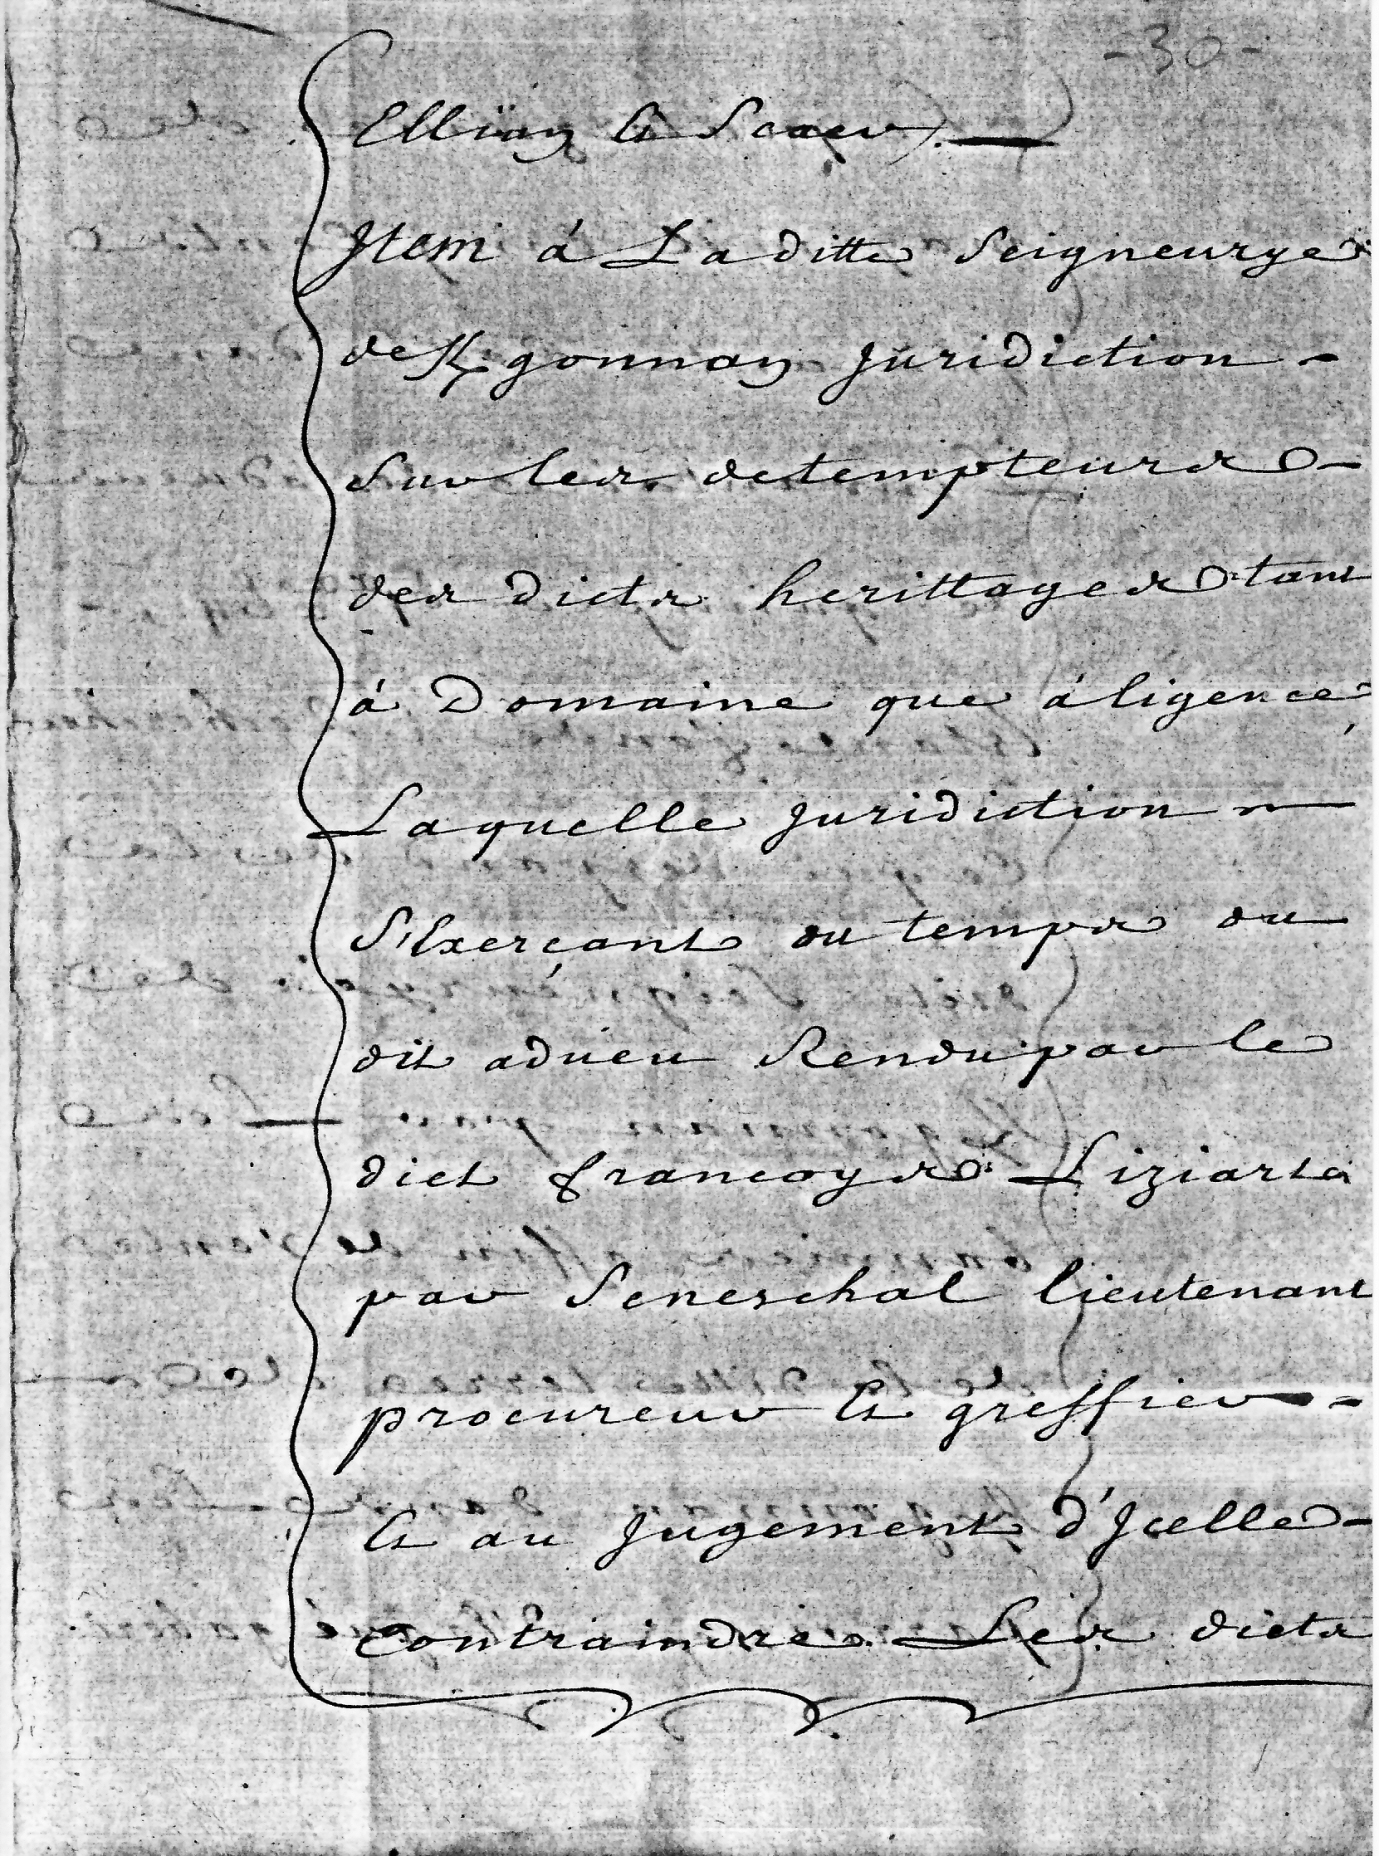 -30-
Elliäy et Scaer).
Item á La ditte Seigneurye
de K/gonnay Juridiction -
Sur les detempteurs -
des dicts herittages tant
á Domaine que á ligence,
Laquelle Juridiction
S'Exerçant au temps du
dit adueu Rendu par le
dict francoys Liziart
par Seneschal lieutenant
procureur et greffier - -
et au Jugement d'Icelle -
contraindre Les dicts